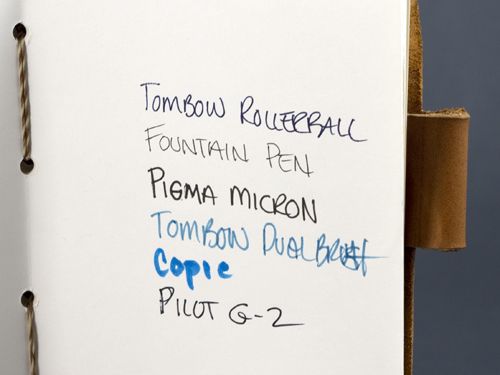 TOMBOW ROLLERBALL
FOUNTAIN PEN
PIGMA MICRON
TOMBOW DUAL BRUSH
Copic
PILOT G-2